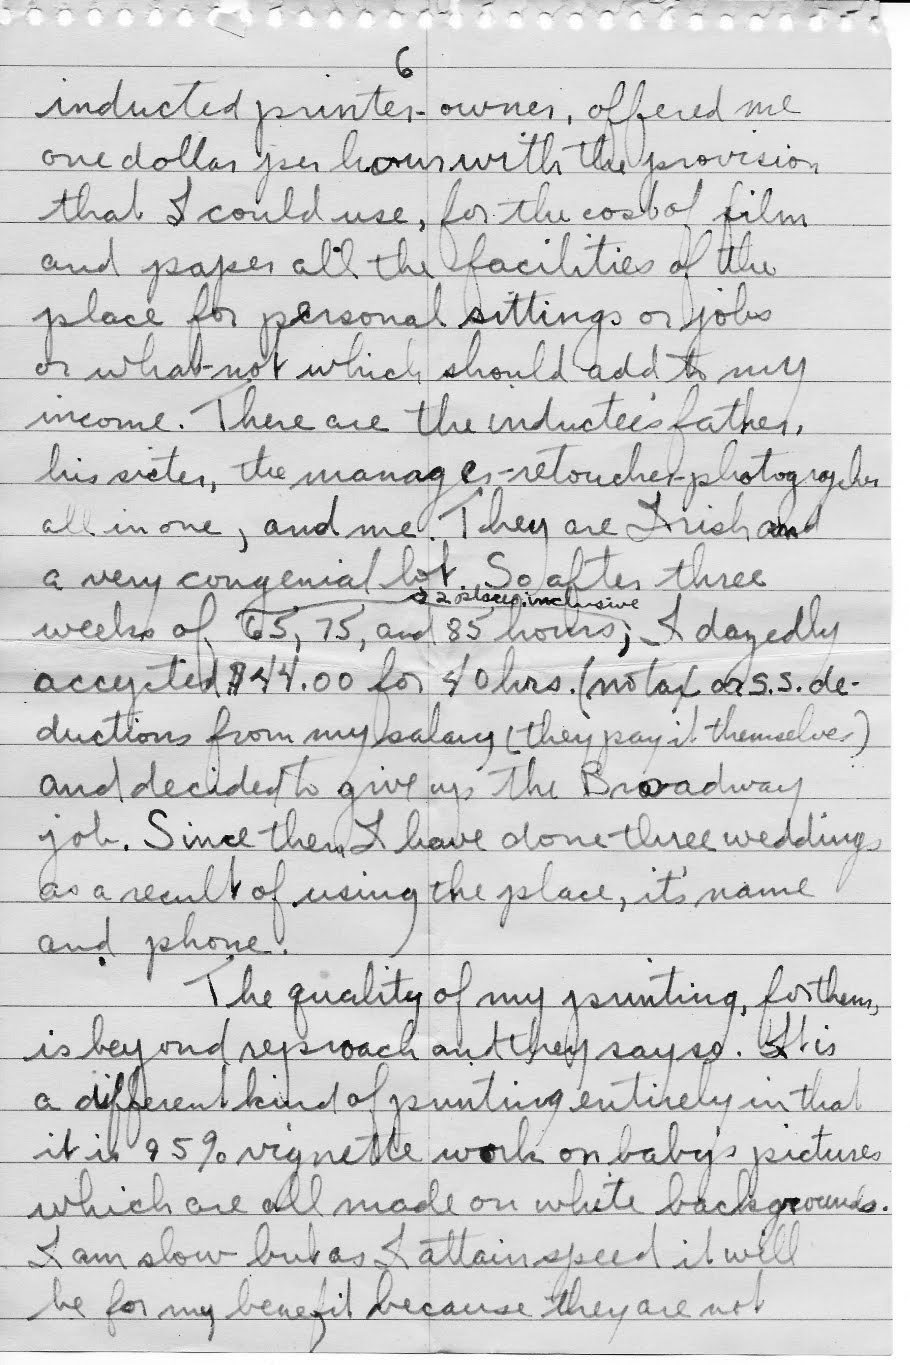 6
inducted printer-owner, offered me
one dollar per hour with the provision
that I could use, for the cost of film
and paper all the facilities of the
place for personal sittings or jobs
or what-not which should add to my
income. There are the inductee's father,
his sister, the manager-retoucher-photographer
all in one, and me. They are Irish and
a very congenial lot. So after three
2 places inclusive
weeks of 65, 75, and 85 hours, I dazedly
accepted $44.00 for 40 hrs. (no tax or S.S. de-
ductions from my salary (they pay it themselves)
and decided to give up the Broadway
job. Since then I have done three weddings
as a result of using the place, it's name
and phone.
The quality of my printing, for them,
is beyond reproach and they say so. It is
a different kind of printing entirely in that
it is 95% vignette work on baby's pictures
which are all made on white backgrounds.
I am slow but as I attain speed it will
be for my benefit because they are not